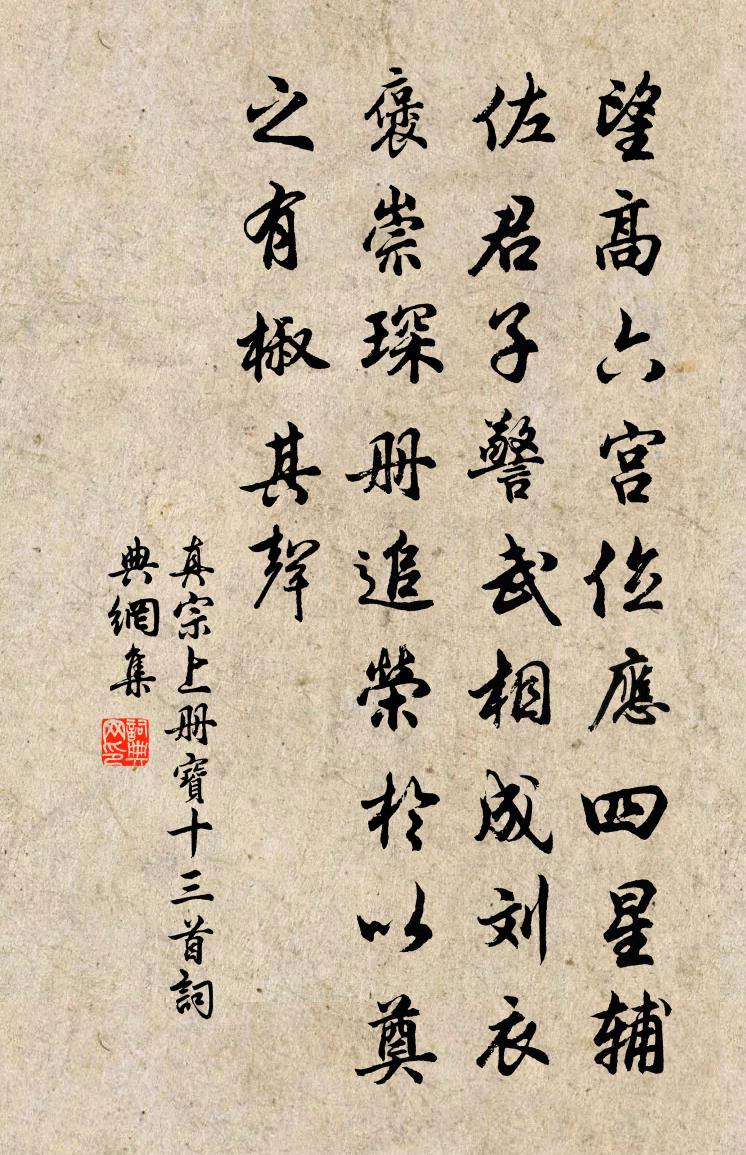 望高六宫位應四星辅
佐君子警武相成刘衣
褒崇琛册追榮於以奠
之有椒其聲
真宗上册寶十三首詞
典網集
詞典网印